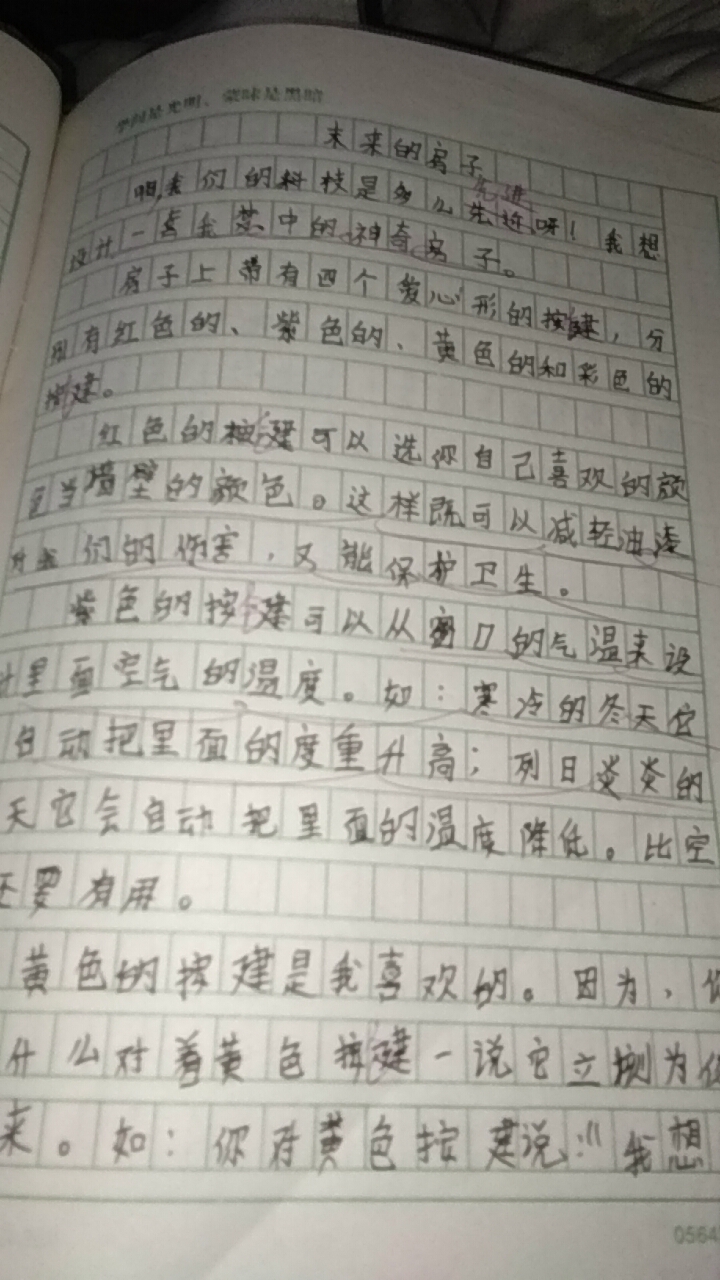 学问是光明、蒙昧是黑暗
未来的房子
咱,我们的科技是多么先进呀！我想
设计一善我梦中的神奇房子。
房子上带有四个爱心形的按建，分
别有红色的、紫色的、黄色的和彩色的
按建。
红色的按建可以选你自己喜欢的颜
色当墙壁的颜色。这样既可以减轻油漆
对我们的伤害，又能保护卫生。
紫色的按建可以从窗口的气温来设
计里面空气的温度。如：寒冷的冬天它
自动把里面的度重升高；列日炎炎的
天它会自动把里面的温度降低。比空
还要有用。
黄色的按建是我喜欢的。因为，你
什么对着黄色按建一说它立捌为你
来。如：你对黄色按建说：“我想
0564